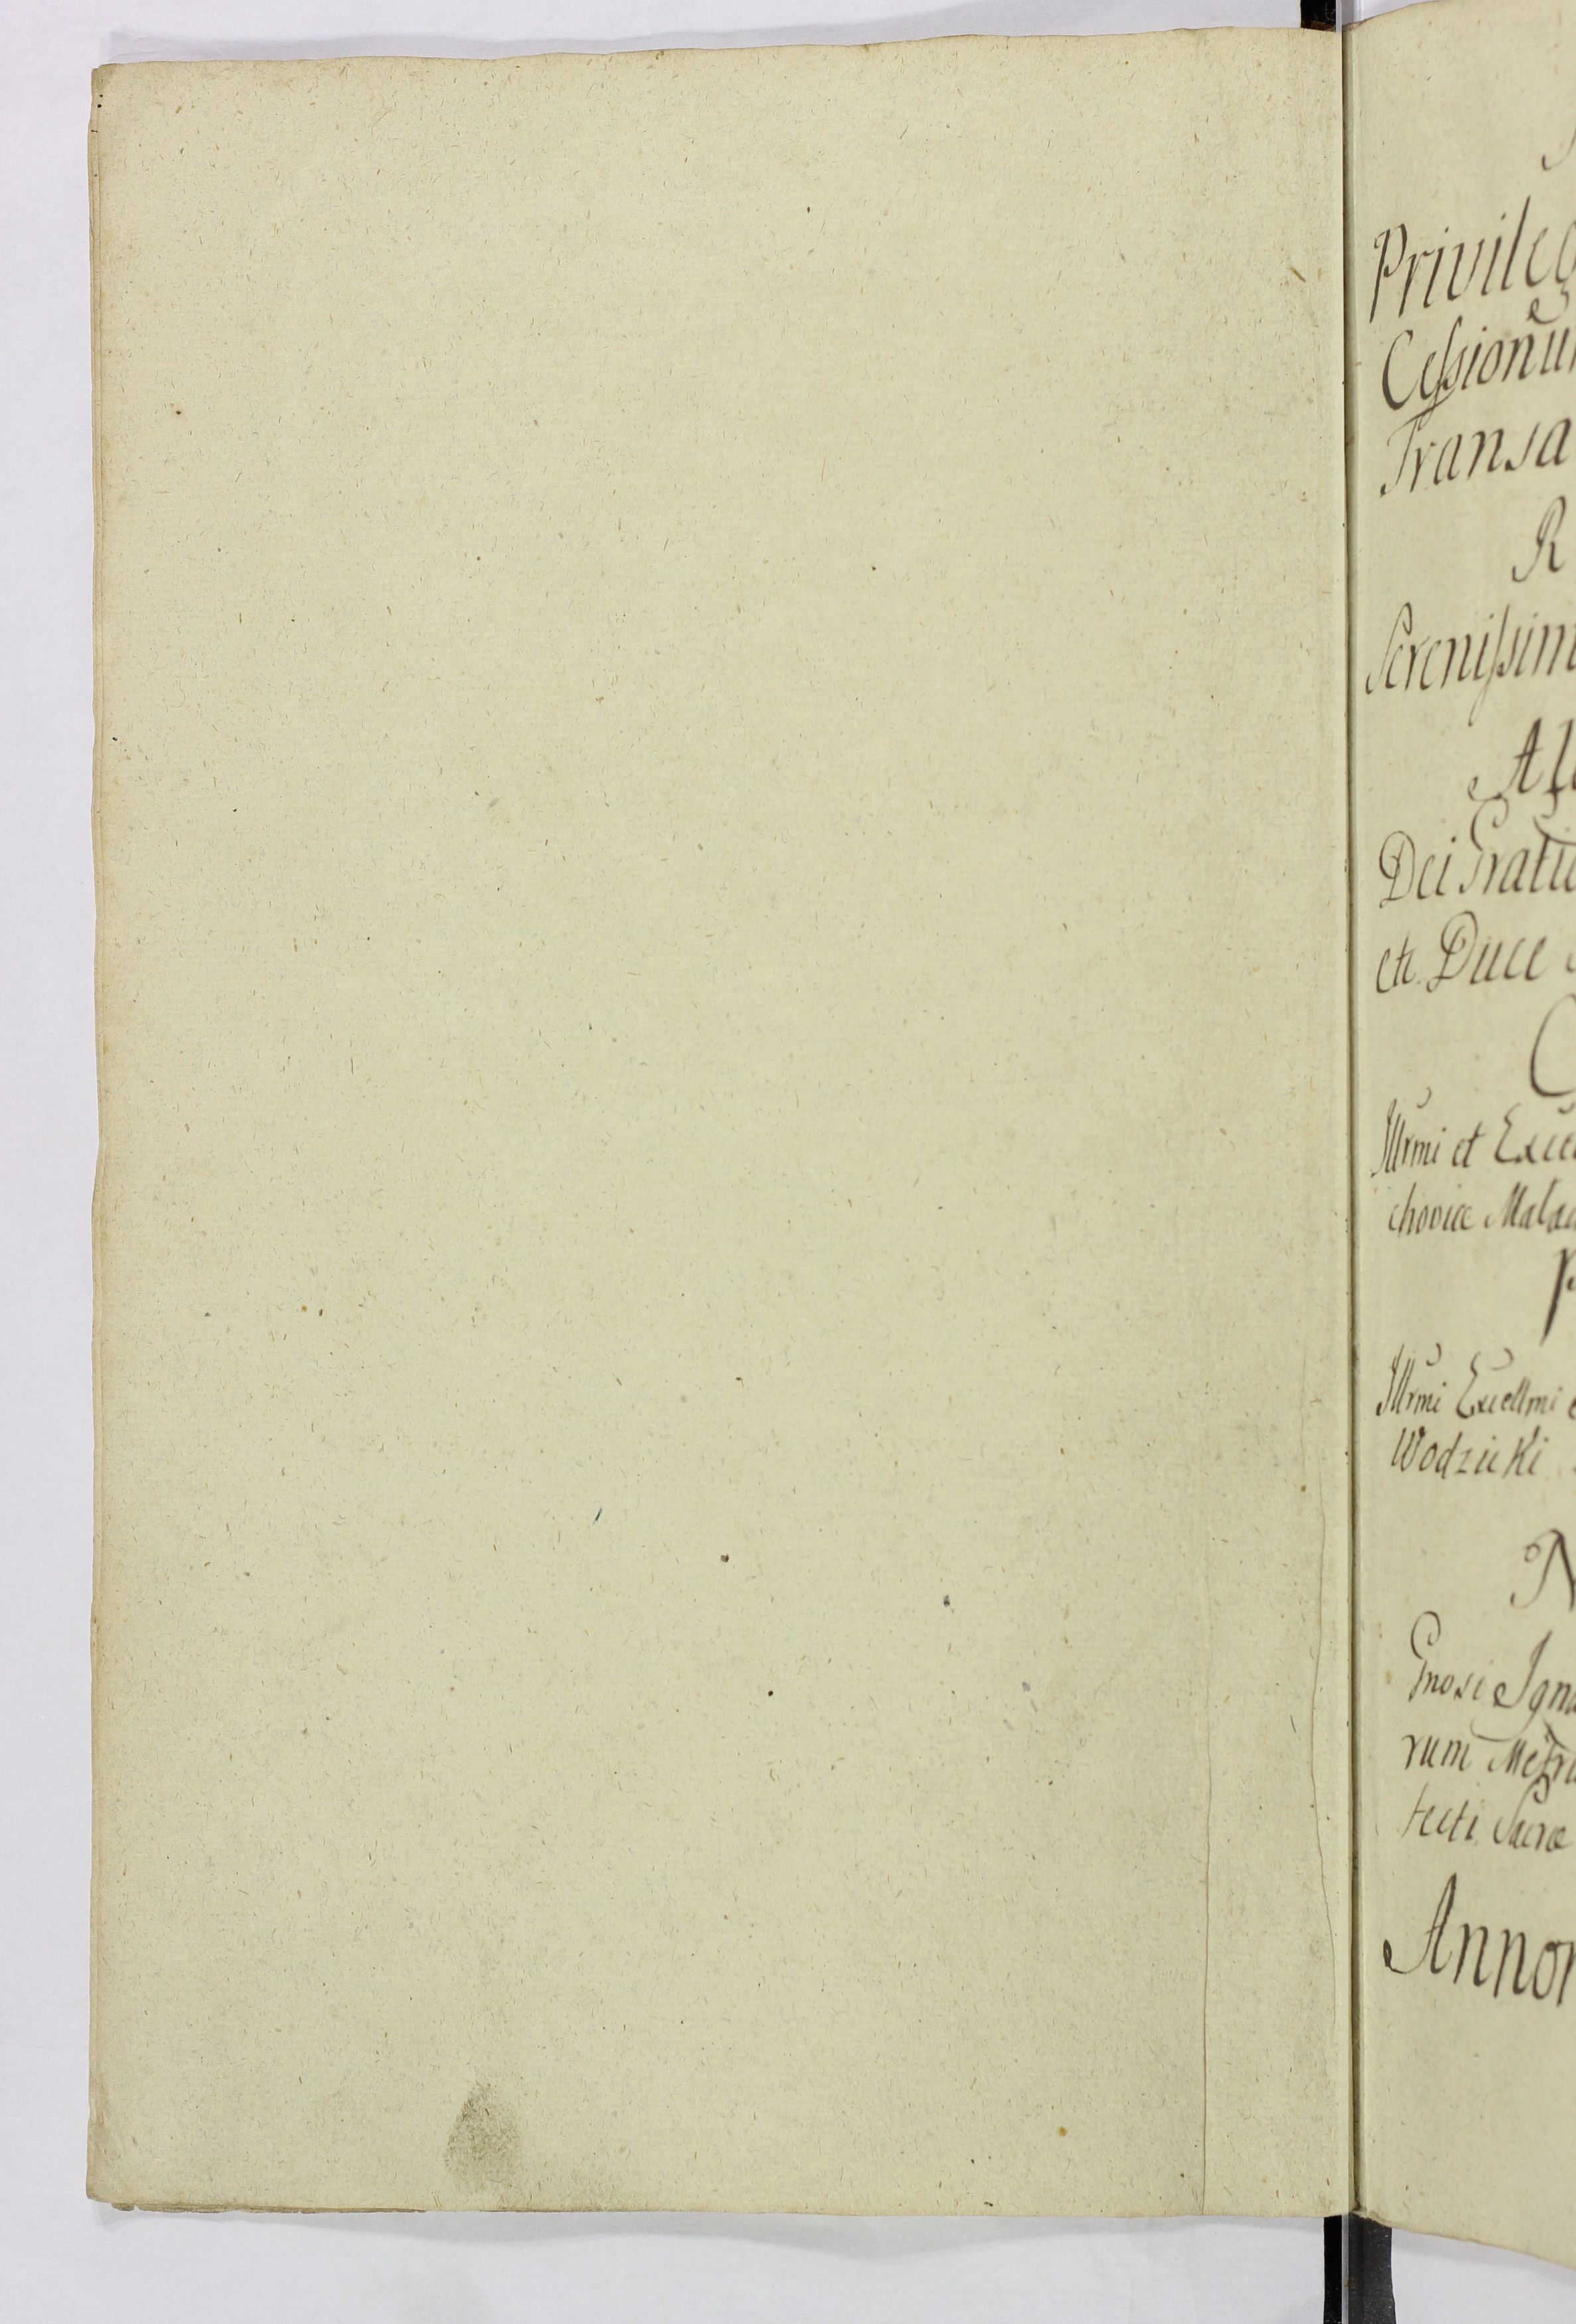 Privileg
Cessionu
Transa
R
Serenissim
Dei Grati
etc. Duce
Illrmi et Exce
chovice Mala
P
Illrmi Excellmi e
Wodzicki
N
Gnosi Igna
rum Metri
tecti Sacræ
Annor